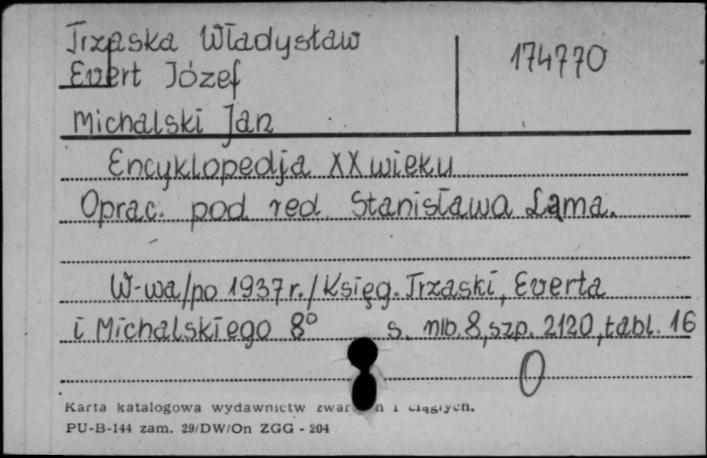 Trzaska Władysław
174770
Evert Józef
Michalski Jan
Encyklopedja XX wieku
Oprac. pod red. Stanisława Lama.
W-wa/po 1937 r./Księg. Trzaski, Everta
i Michalskiego 8° s. nlb. 8, szp. 2120, tabl. 16
0
Karta katalogowa wydawnictw i ciągłych.
PU-B-144 zam. 29/DW/On ZGG - 204